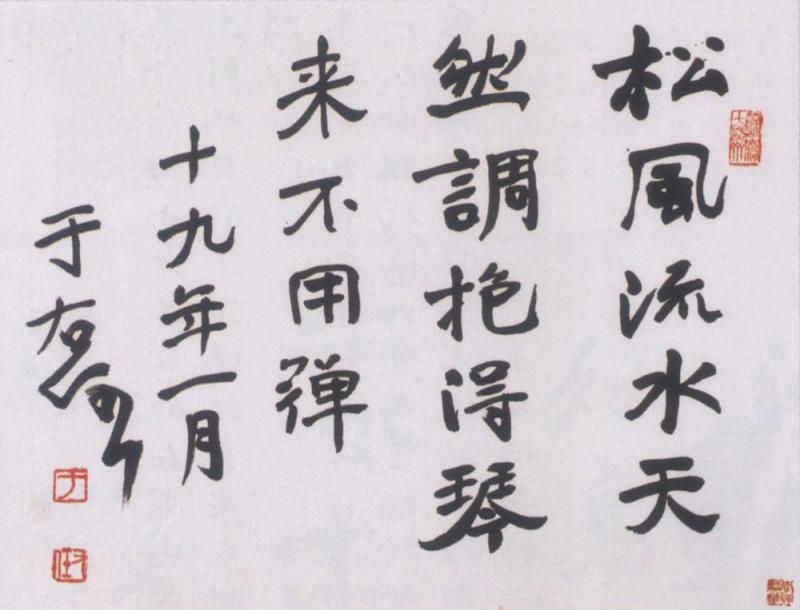 松風流水天
然調抱得琴
来不用弹
十九年一月
于右任
于
任